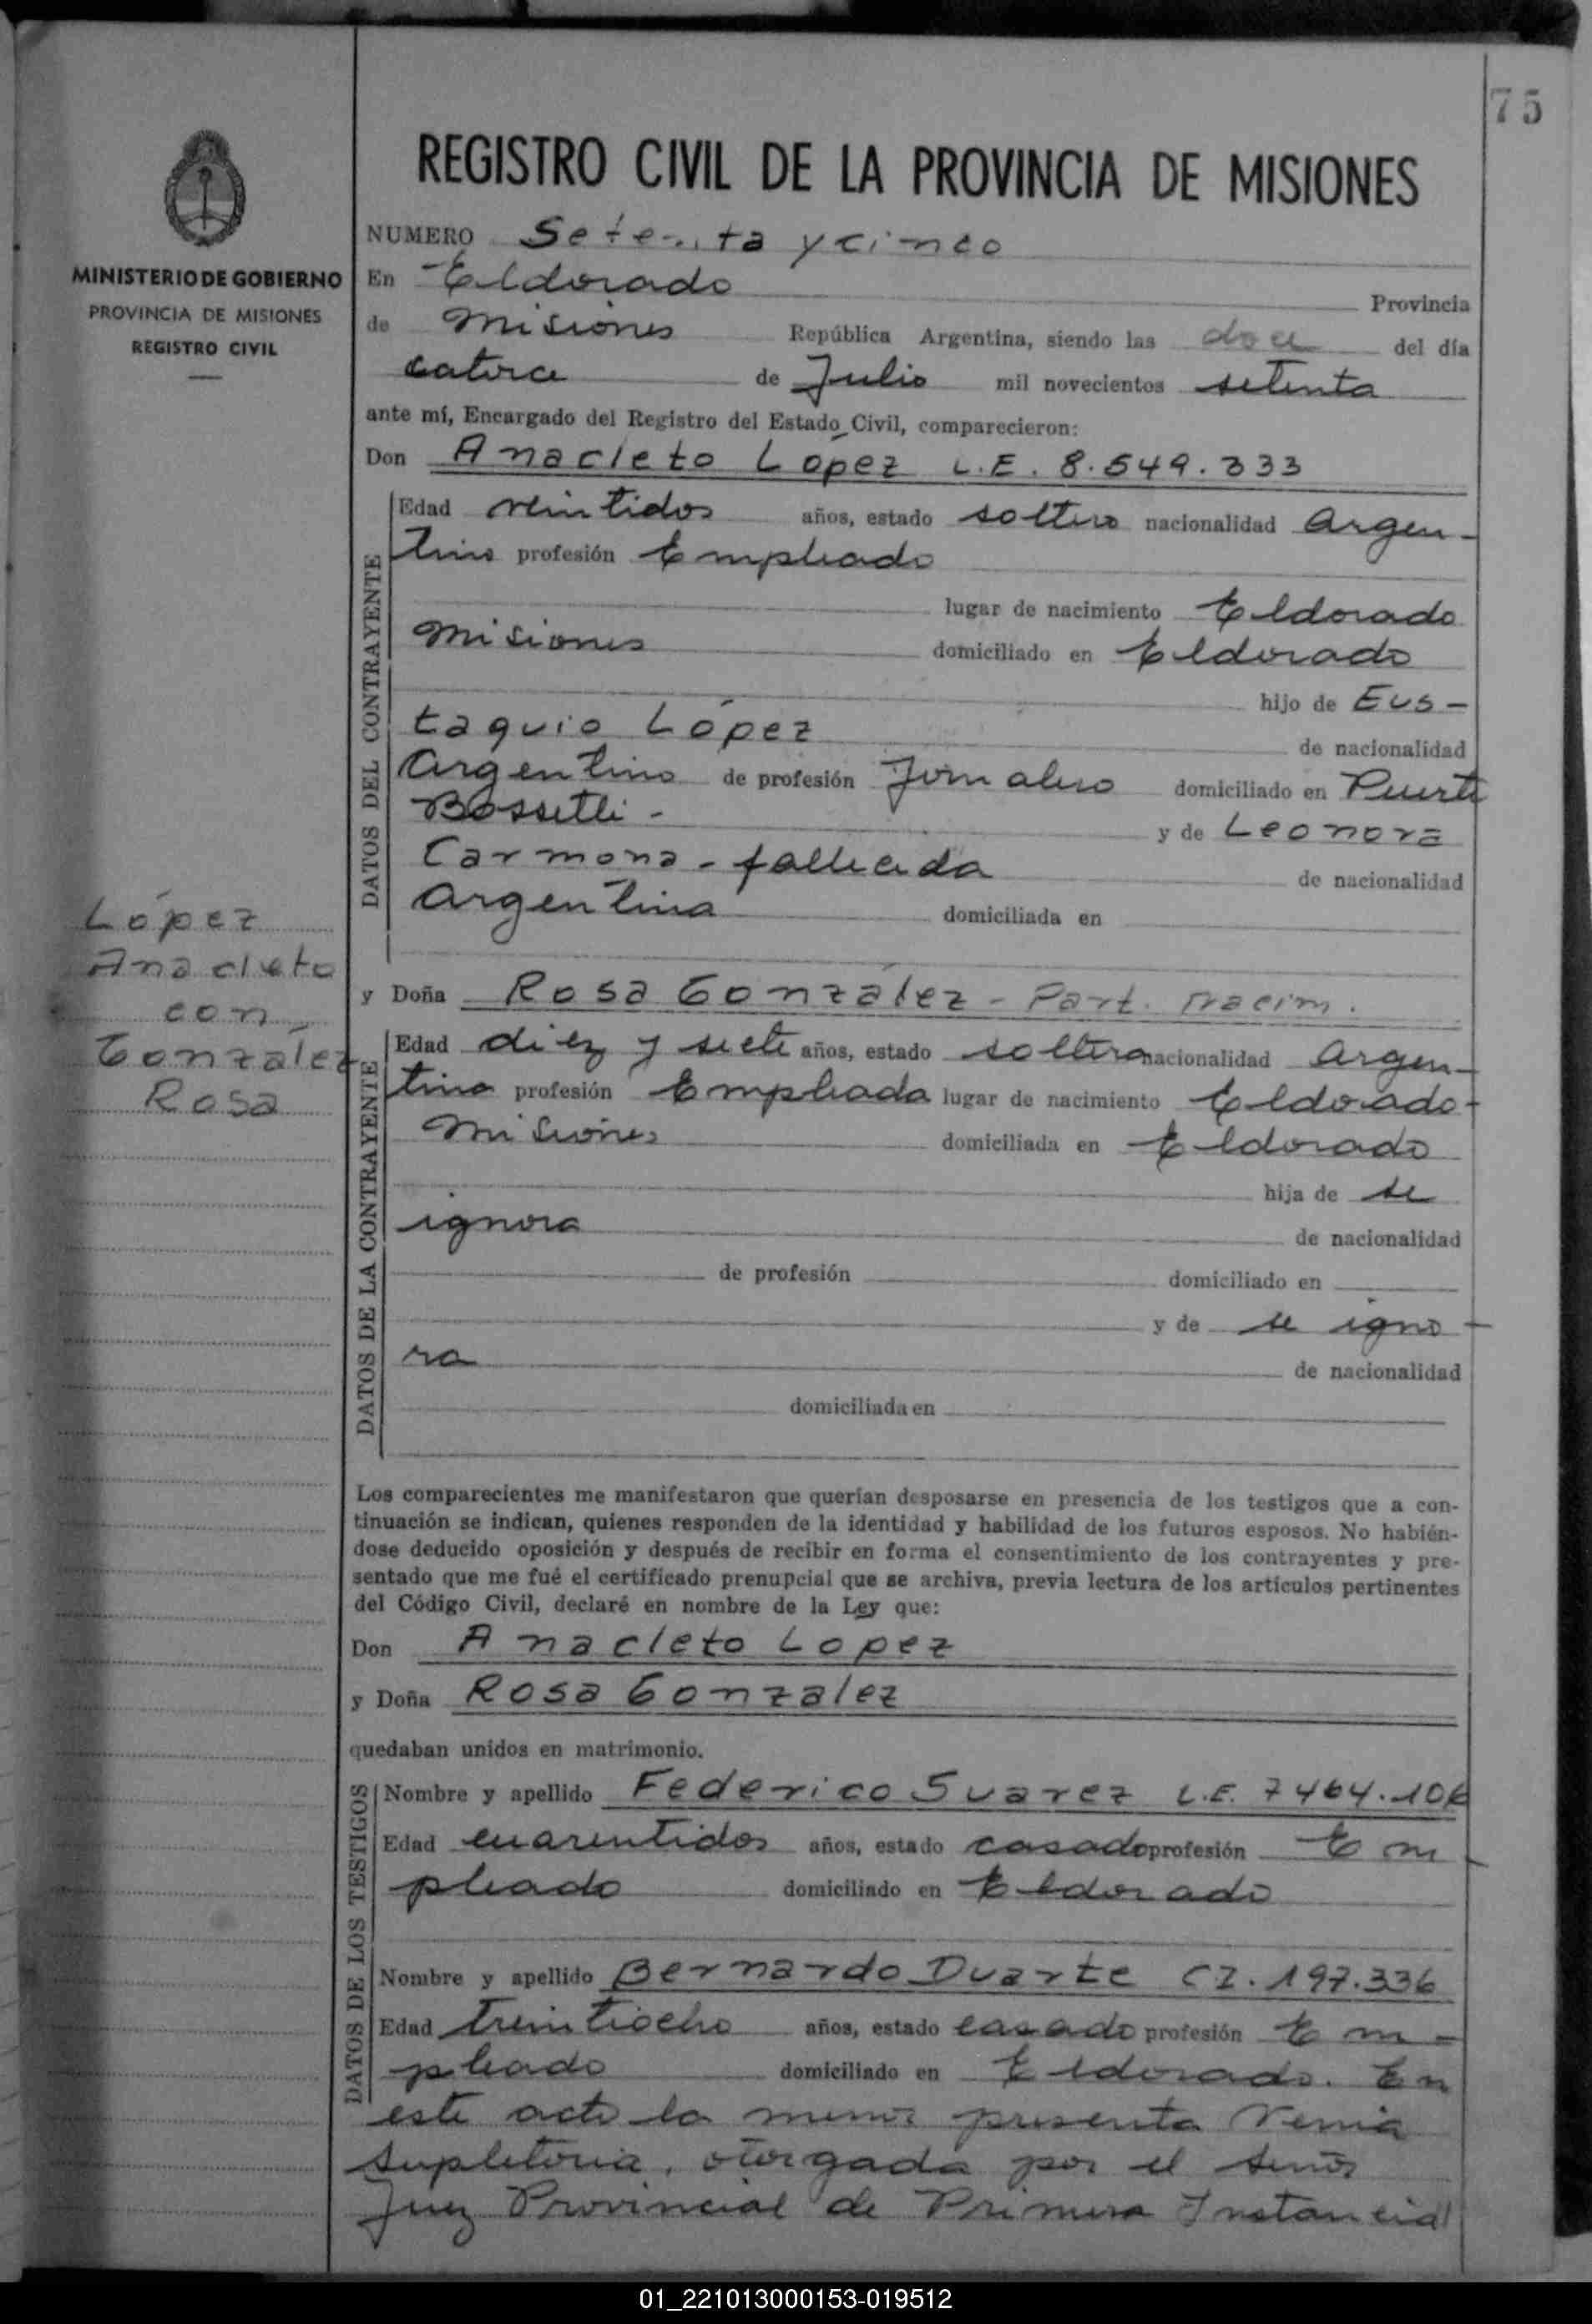 75
REGISTRO CIVIL DE LA PROVINCIA DE MISIONES
MINISTERIO DE GOBIERNO
PROVINCIA DE MISIONES
REGISTRO CIVIL
López
Anacleto
con
González
Rosa
NUMERO Setenta y cinco
En Eldorado Provincia
de Misiones República Argentina, siendo las doce del día
catorce de Julio mil novecientos setenta
ante mí, Encargado del Registro del Estado Civil, comparecieron:
Don Anacleto López L.E. 8.549.333
DATOS DEL CONTRAYENTE
Edad veintidos años, estado soltero nacionalidad Argen-
tino profesión Empleado
lugar de nacimiento Eldorado
Misiones domiciliado en Eldorado
hijo de Eus-
taquio López de nacionalidad
Argentino de profesión Jornalero domiciliado en Puerto
Bossetti - y de Leonora
Carmona - fallecida de nacionalidad
Argentina domiciliada en
y Doña Rosa González - Part. Nacim.
DATOS DE LA CONTRAYENTE
Edad diez y siete años, estado soltera nacionalidad Argen-
tina profesión Empleada lugar de nacimiento Eldorado-
Misiones domiciliada en Eldorado
hija de se
ignora de nacionalidad
de profesión domiciliado en
y de se igno-
ra de nacionalidad
domiciliada en
Los comparecientes me manifestaron que querían desposarse en presencia de los testigos que a con-
tinuación se indican, quienes responden de la identidad y habilidad de los futuros esposos. No habién-
dose deducido oposición y después de recibir en forma el consentimiento de los contrayentes y pre-
sentado que me fué el certificado prenupcial que se archiva, previa lectura de los artículos pertinentes
del Código Civil, declaré en nombre de la Ley que:
Don Anacleto Lopez
y Doña Rosa Gonzalez
quedaban unidos en matrimonio.
DATOS DE LOS TESTIGOS
Nombre y apellido Federico Suarez L.E. 7464.106
Edad cuarentidos años, estado casado profesión Em-
pleado domiciliado en Eldorado
Nombre y apellido Bernardo Duarte CI. 197.336
Edad treintiocho años, estado casado profesión Em-
pleado domiciliado en Eldorado. En
este acto la menor presenta Venia
Supletoria, otorgada por el señor
Juez Provincial de Primera Instancia
01_221013000153-019512